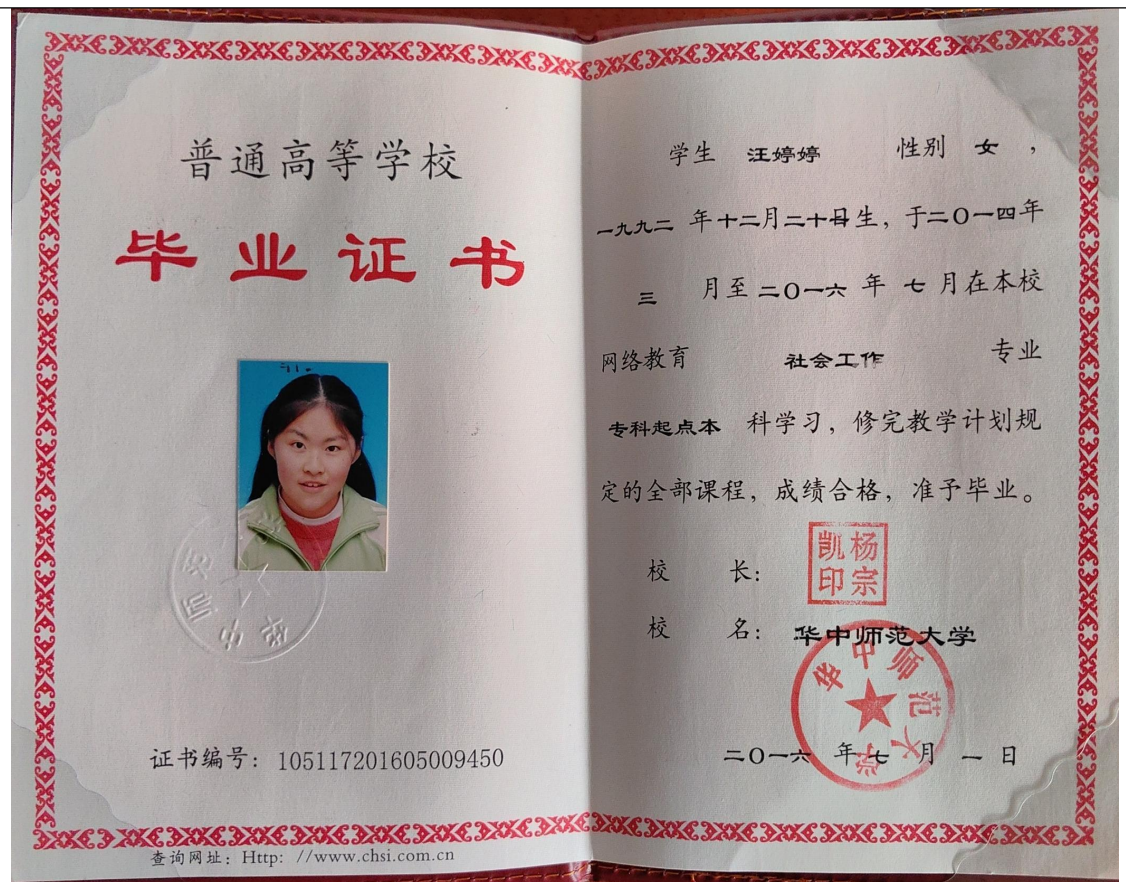 普通高等学校
毕业证书
证书编号：105117201605009450
查询网址：Http: //www.chsi.com.cn
学生 汪婷婷 性别 女，
一九九二 年十二月二十日生，于二〇一四年
三 月至二〇一六 年 七 月在本校
网络教育 社会工作 专业
专科起点本 科学习，修完教学计划规
定的全部课程，成绩合格，准予毕业。
校 长：
杨宗凯印
校 名：华中师范大学
华中师范大学
二〇一六 年 七 月 一 日